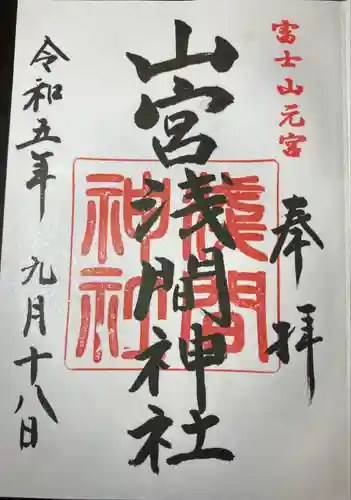 富士山元宮
奉拝
山宮浅間神社
淺間神社
令和五年 九月十八日